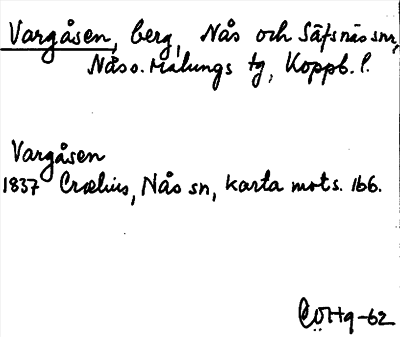 Vargåsen, berg, Nås och Säfsnäs snr,
Nås o. Malungs tg, Koppb. l.
Vargåsen
1837 Crælius, Nås sn, karta mots. 166.
CÖHg-62